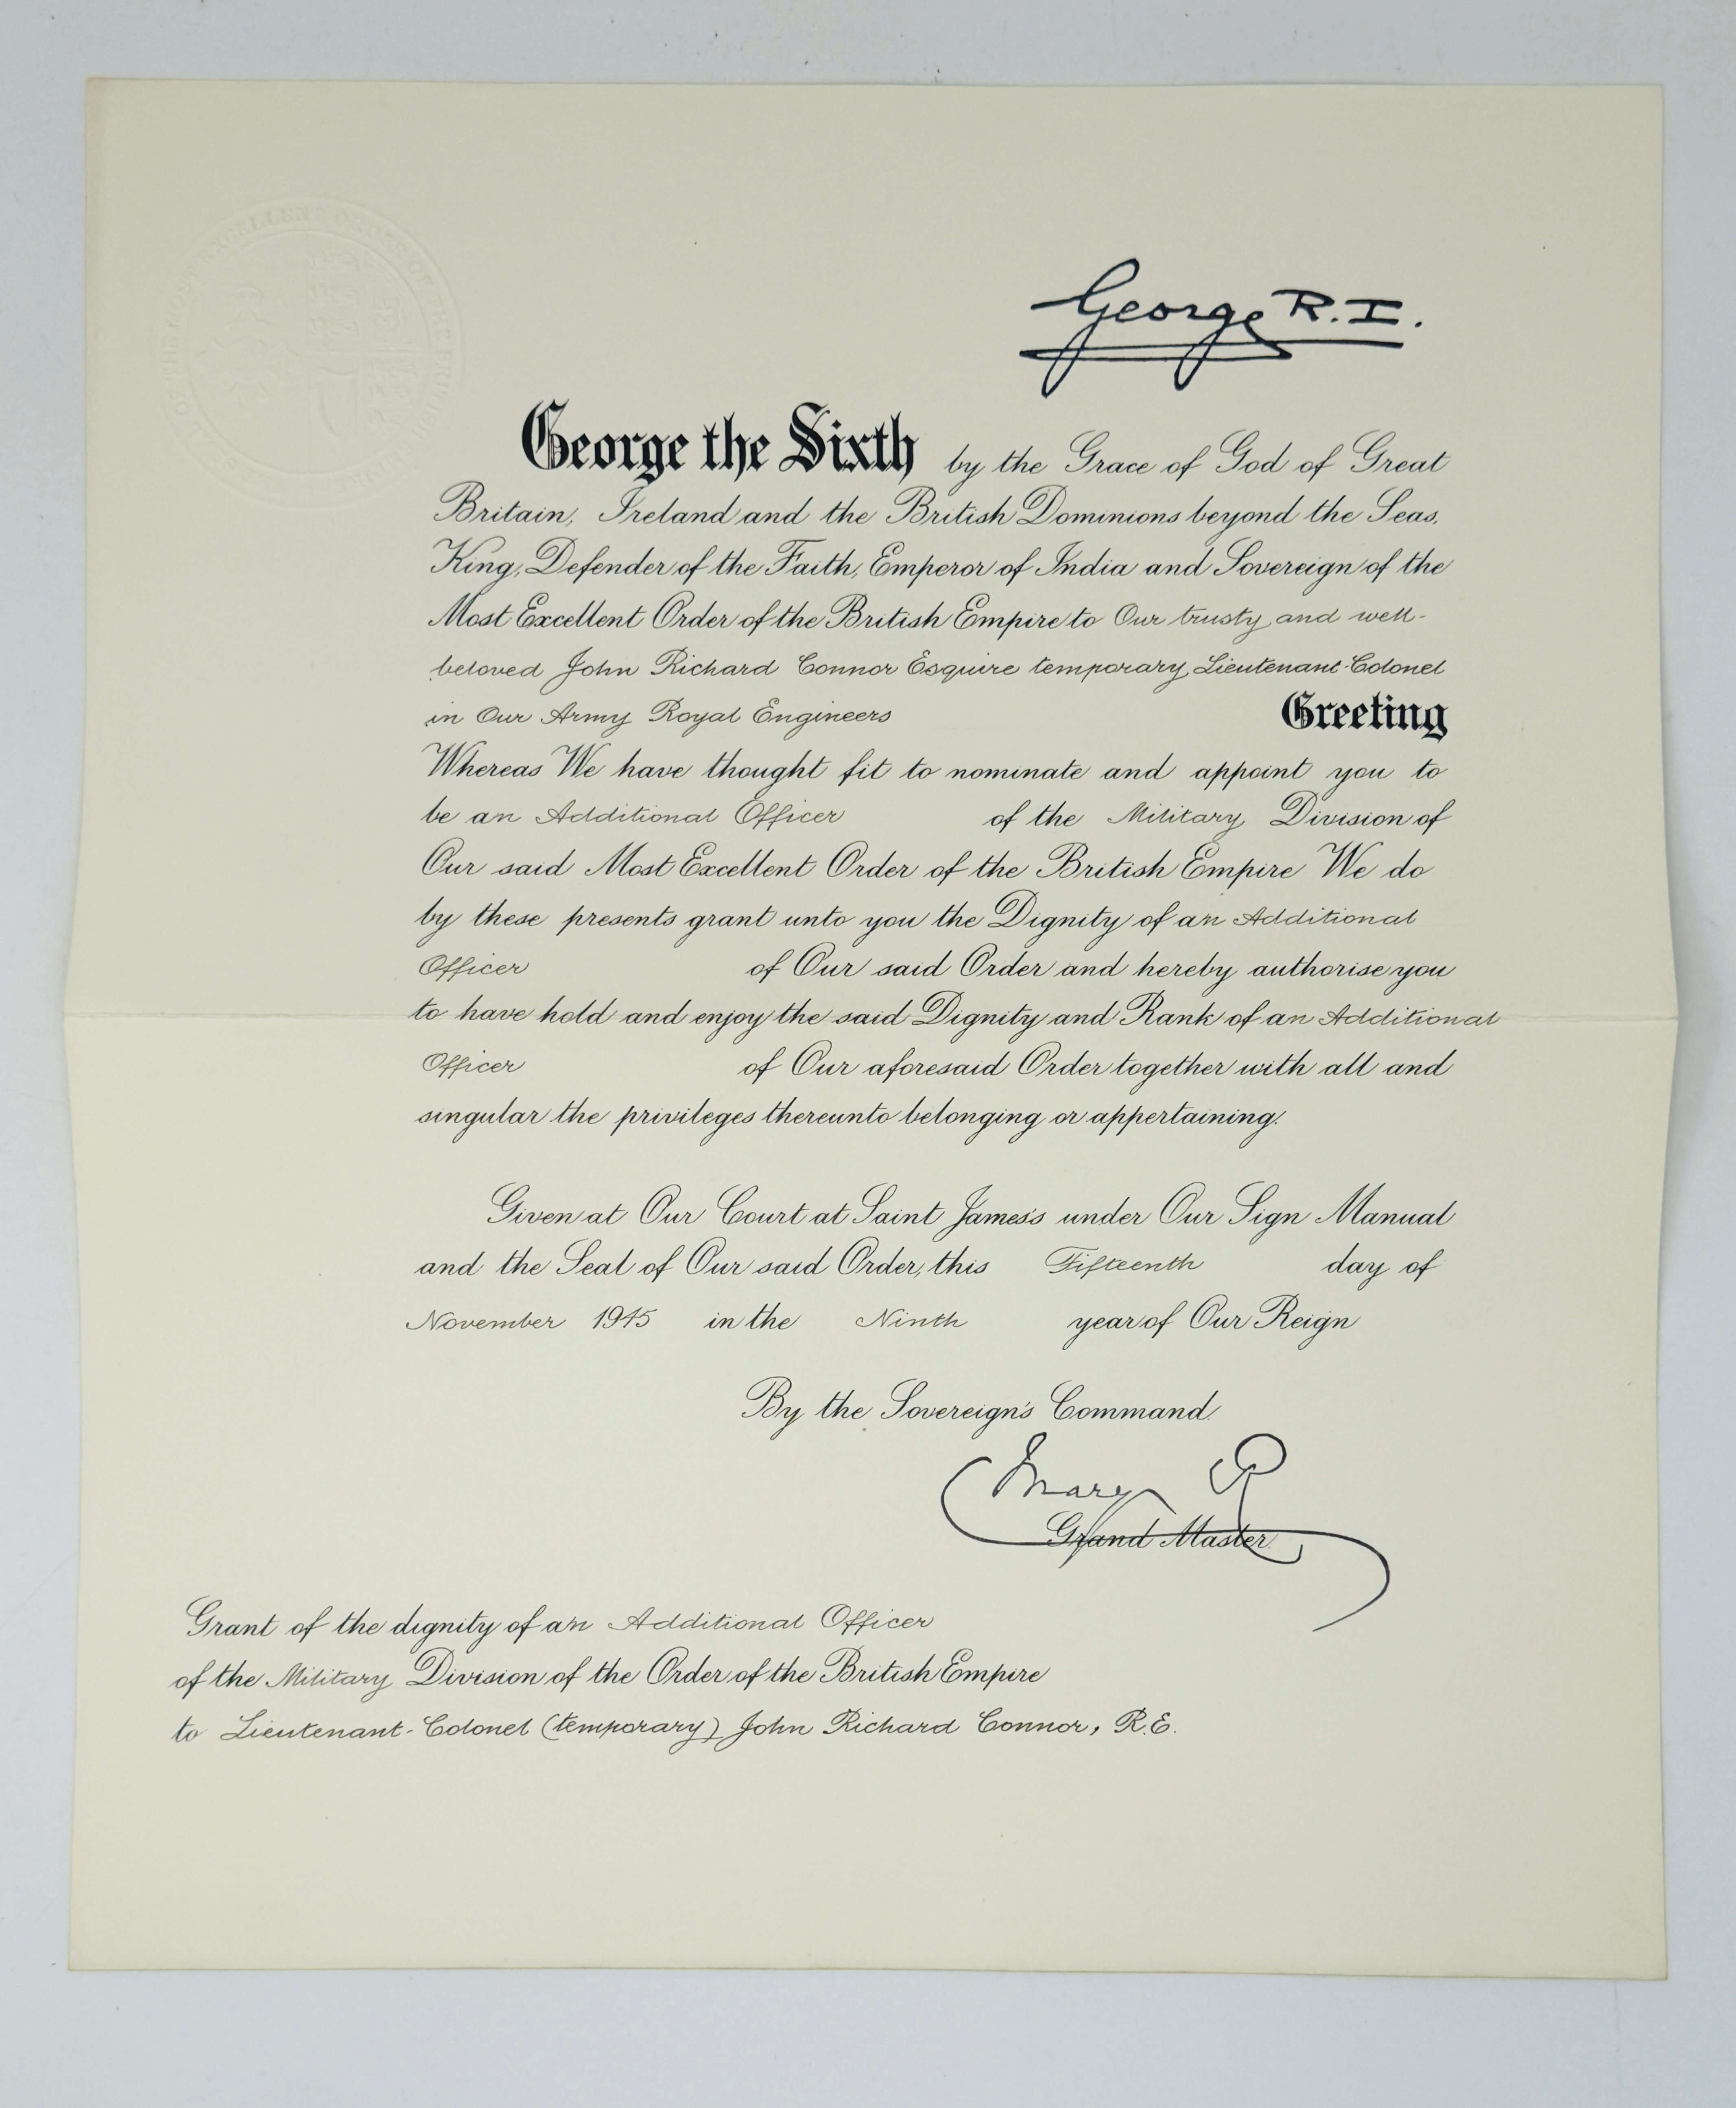 George R.I.
George the Sixth by the Grace of God of Great
Britain, Ireland and the British Dominions beyond the Seas,
King, Defender of the Faith, Emperor of India and Sovereign of the
Most Excellent Order of the British Empire to Our trusty and well-
beloved John Richard Connor Esquire temporary Lieutenant-Colonel
in Our Army Royal Engineers Greeting
Whereas We have thought fit to nominate and appoint you to
be an Additional Officer of the Military Division of
Our said Most Excellent Order of the British Empire We do
by these presents grant unto you the Dignity of an Additional
Officer of Our said Order and hereby authorise you
to have hold and enjoy the said Dignity and Rank of an Additional
Officer of Our aforesaid Order together with all and
singular the privileges thereunto belonging or appertaining.
Given at Our Court at Saint James's under Our Sign Manual
and the Seal of Our said Order, this Fifteenth day of
November 1945 in the Ninth year of Our Reign
By the Sovereign's Command.
Mary R
Grand Master.
Grant of the dignity of an Additional Officer
of the Military Division of the Order of the British Empire
to Lieutenant-Colonel (temporary) John Richard Connor, R.E.